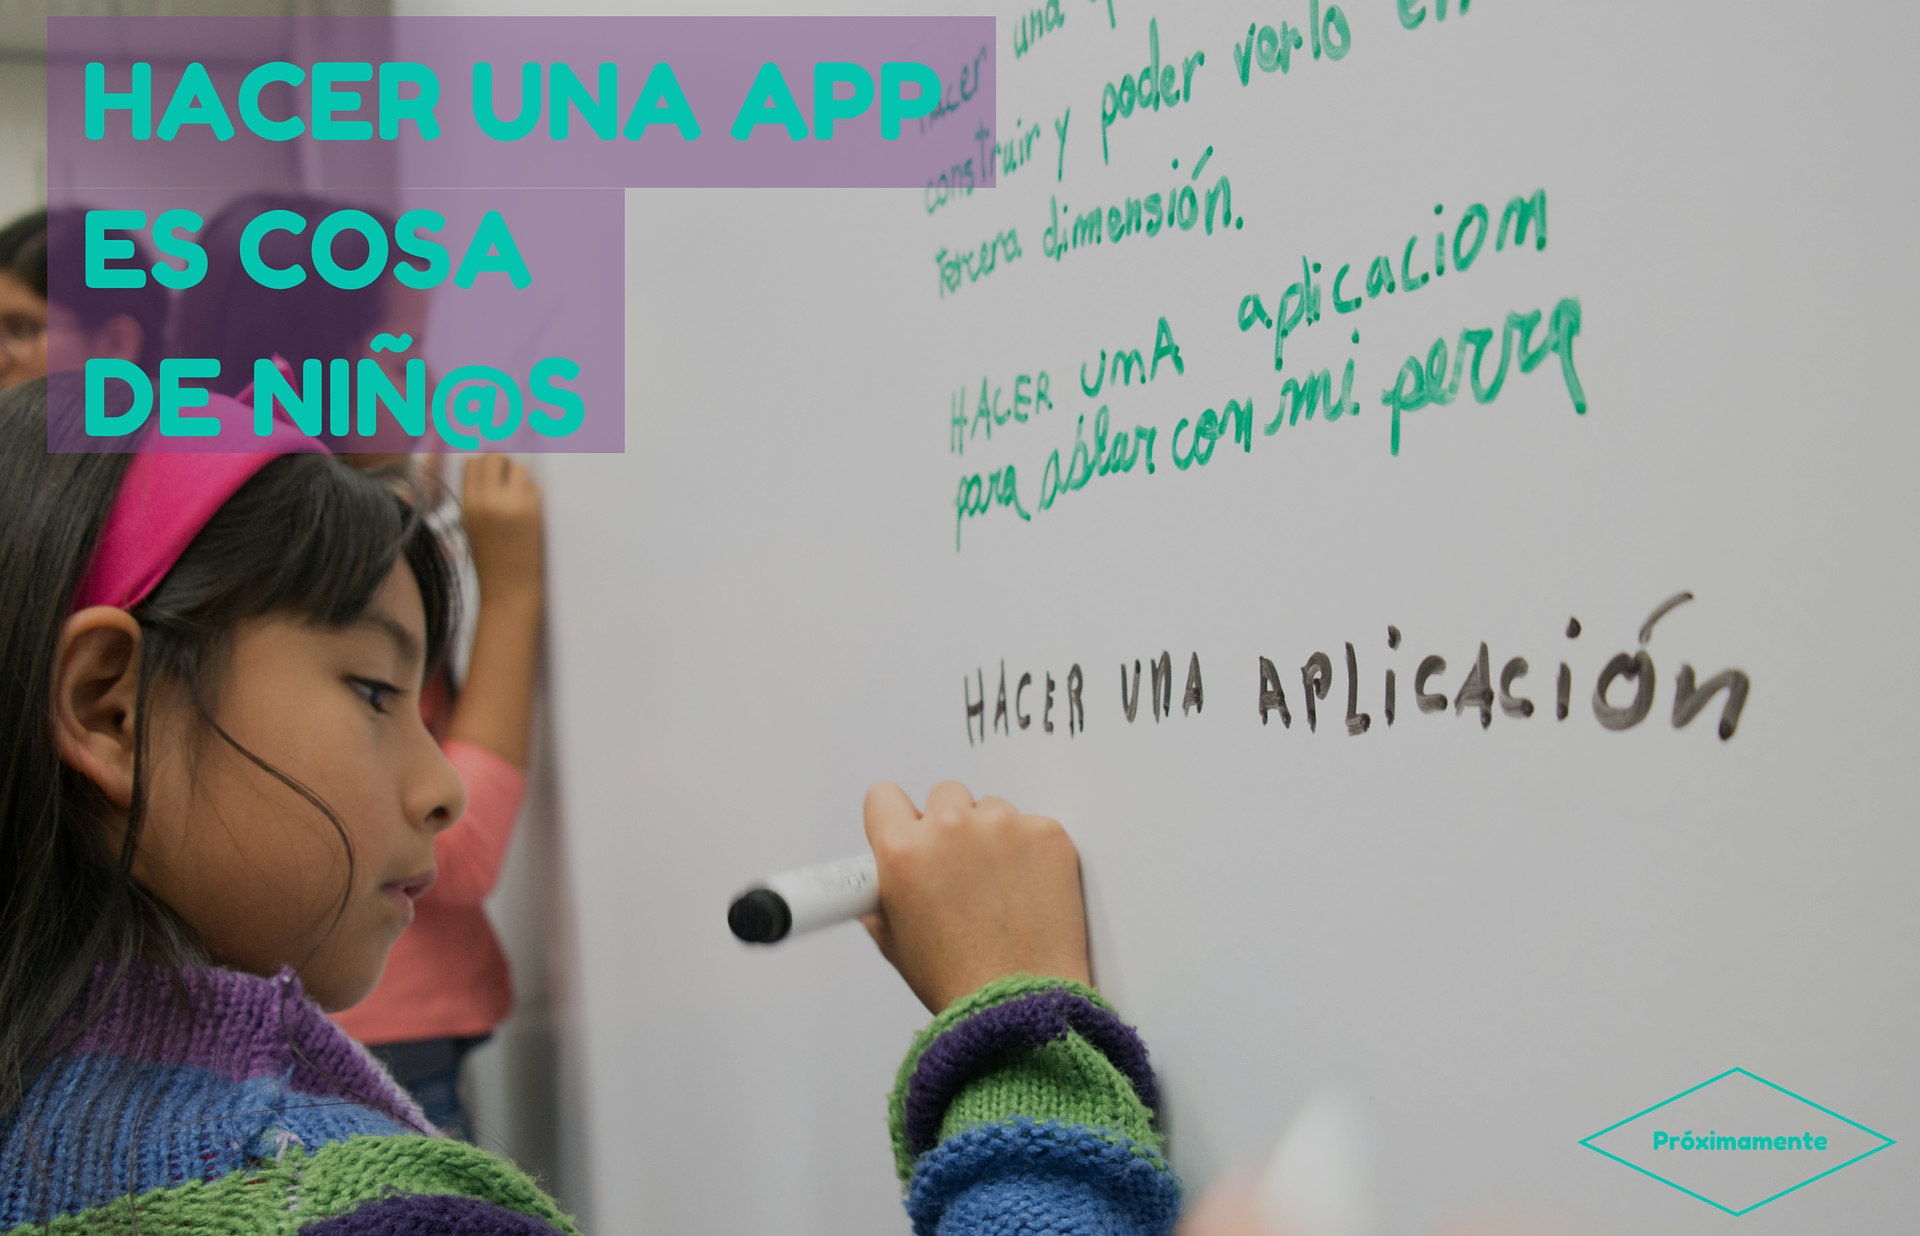 HACER UNA APP
ES COSA
DE NIÑ@S
hacer una
construir y poder verlo en
tercera dimensión.
HACER UNA aplicaciom
para ablar con mi perra
HACER UNA APLiCACión
Próximamente